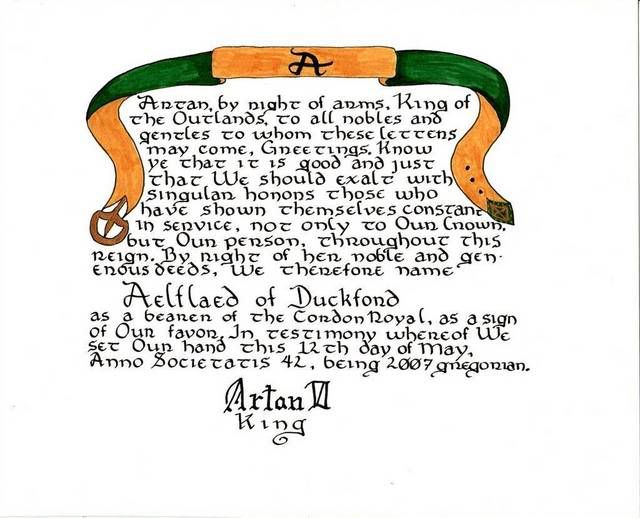 A
Artan, by right of arms, King of
the Outlands, to all nobles and
gentles to whom these letters
may come, Greetings. Know
ye that it is good and just
that We should exalt with
singular honors those who
have shown themselves constant
in service, not only to Our Crown,
but Our person, throughout this
reign. By right of her noble and gen-
erous deeds, We therefore name
Aelflaed of Duckford
as a bearer of the Cordon Royal, as a sign
of Our favor. In testimony whereof We
set Our hand this 12th day of May,
Anno Societatis 42, being 2007 gregorian.
Artan VI
King